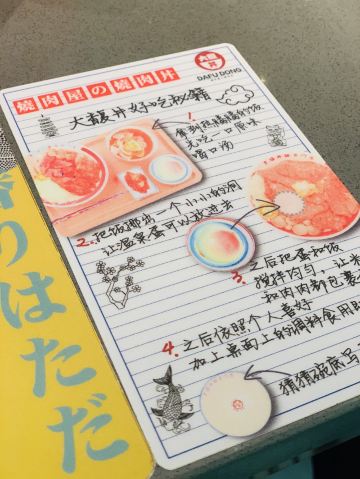 大馥
丼
DAFU DONG
燒肉屋の燒肉丼
大馥丼好吃秘籍
1.
拿到热腾腾的饭
先吃一口原味
喝口汤
2. 把饭挪出一个小小的洞
让温泉蛋可以放进去
3. 之后把蛋和饭
搅拌均匀，让米
和肉肉都包裹
4. 之后依照个人喜好
加上桌面上的调料食用即
猜猜碗底
りはただ